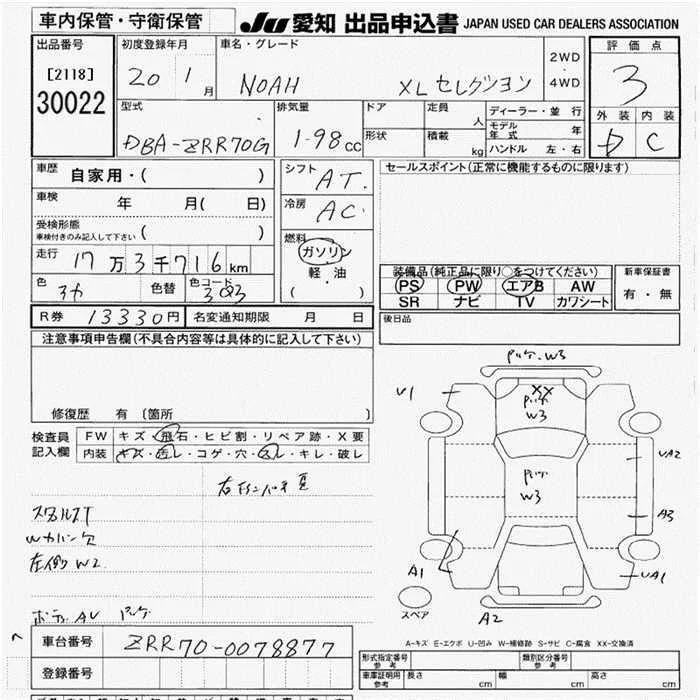 車内保管・守衛保管
JU 愛知 出品申込書 JAPAN USED CAR DEALERS ASSOCIATION
出品番号
[2118]
30022
初度登録年月
20 1月
車名・グレード
NOAH XLセレクション
2WD
・
4WD
評価点
3
外装 内装
D C
型式
DBA-ZRR70G
排気量
1-98cc
ドア
形状
定員 人
積載 kg
ディーラー・並行
モデル年式 年
ハンドル 左・右
車歴
自家用・( )
シフト
AT.
セールスポイント(正常に機能するものに限ります)
車検
年 月( 日)
冷房
AC
受検形態
車検付きのみ記入して下さい ( )
燃料
ガソリン
・
軽油
・
( )
走行 17万3千716km
色
色替
色コード
3Q3
装備品(純正品に限り○をつけてください)
PS PW エアB AW
SR ナビ TV カワシート
新車保証書
有・無
R券 13330円 名変通知期限 月 日
後日品
注意事項申告欄(不具合内容等は具体的に記入して下さい)
修復歴 有〔箇所 〕
検査員
記入欄
FW キズ・飛石・ヒビ割・リペア跡・X要
内装 キズ・汚レ・コゲ・穴・スレ・キレ・破レ
スペアルスT
Wカバー欠
左側 W2
W3
U1
XX
W3
W3
UA2
A3
A1
UA1
A2
スペア
A-キズ E-エクボ U-凹み W-補修跡 S-サビ C-腐食 XX-交換済
車台番号 ZRR70-0078877
登録番号
形式指定番号
参考
類別区分番号
参考
車庫証明用
参考
長さ cm 幅 cm 高さ cm